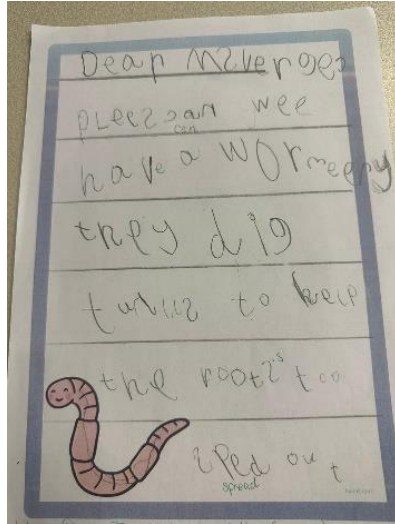 Dear
pleesan wee
can
have a wormeery
they dig
to keep
the roots too
sped out
spread